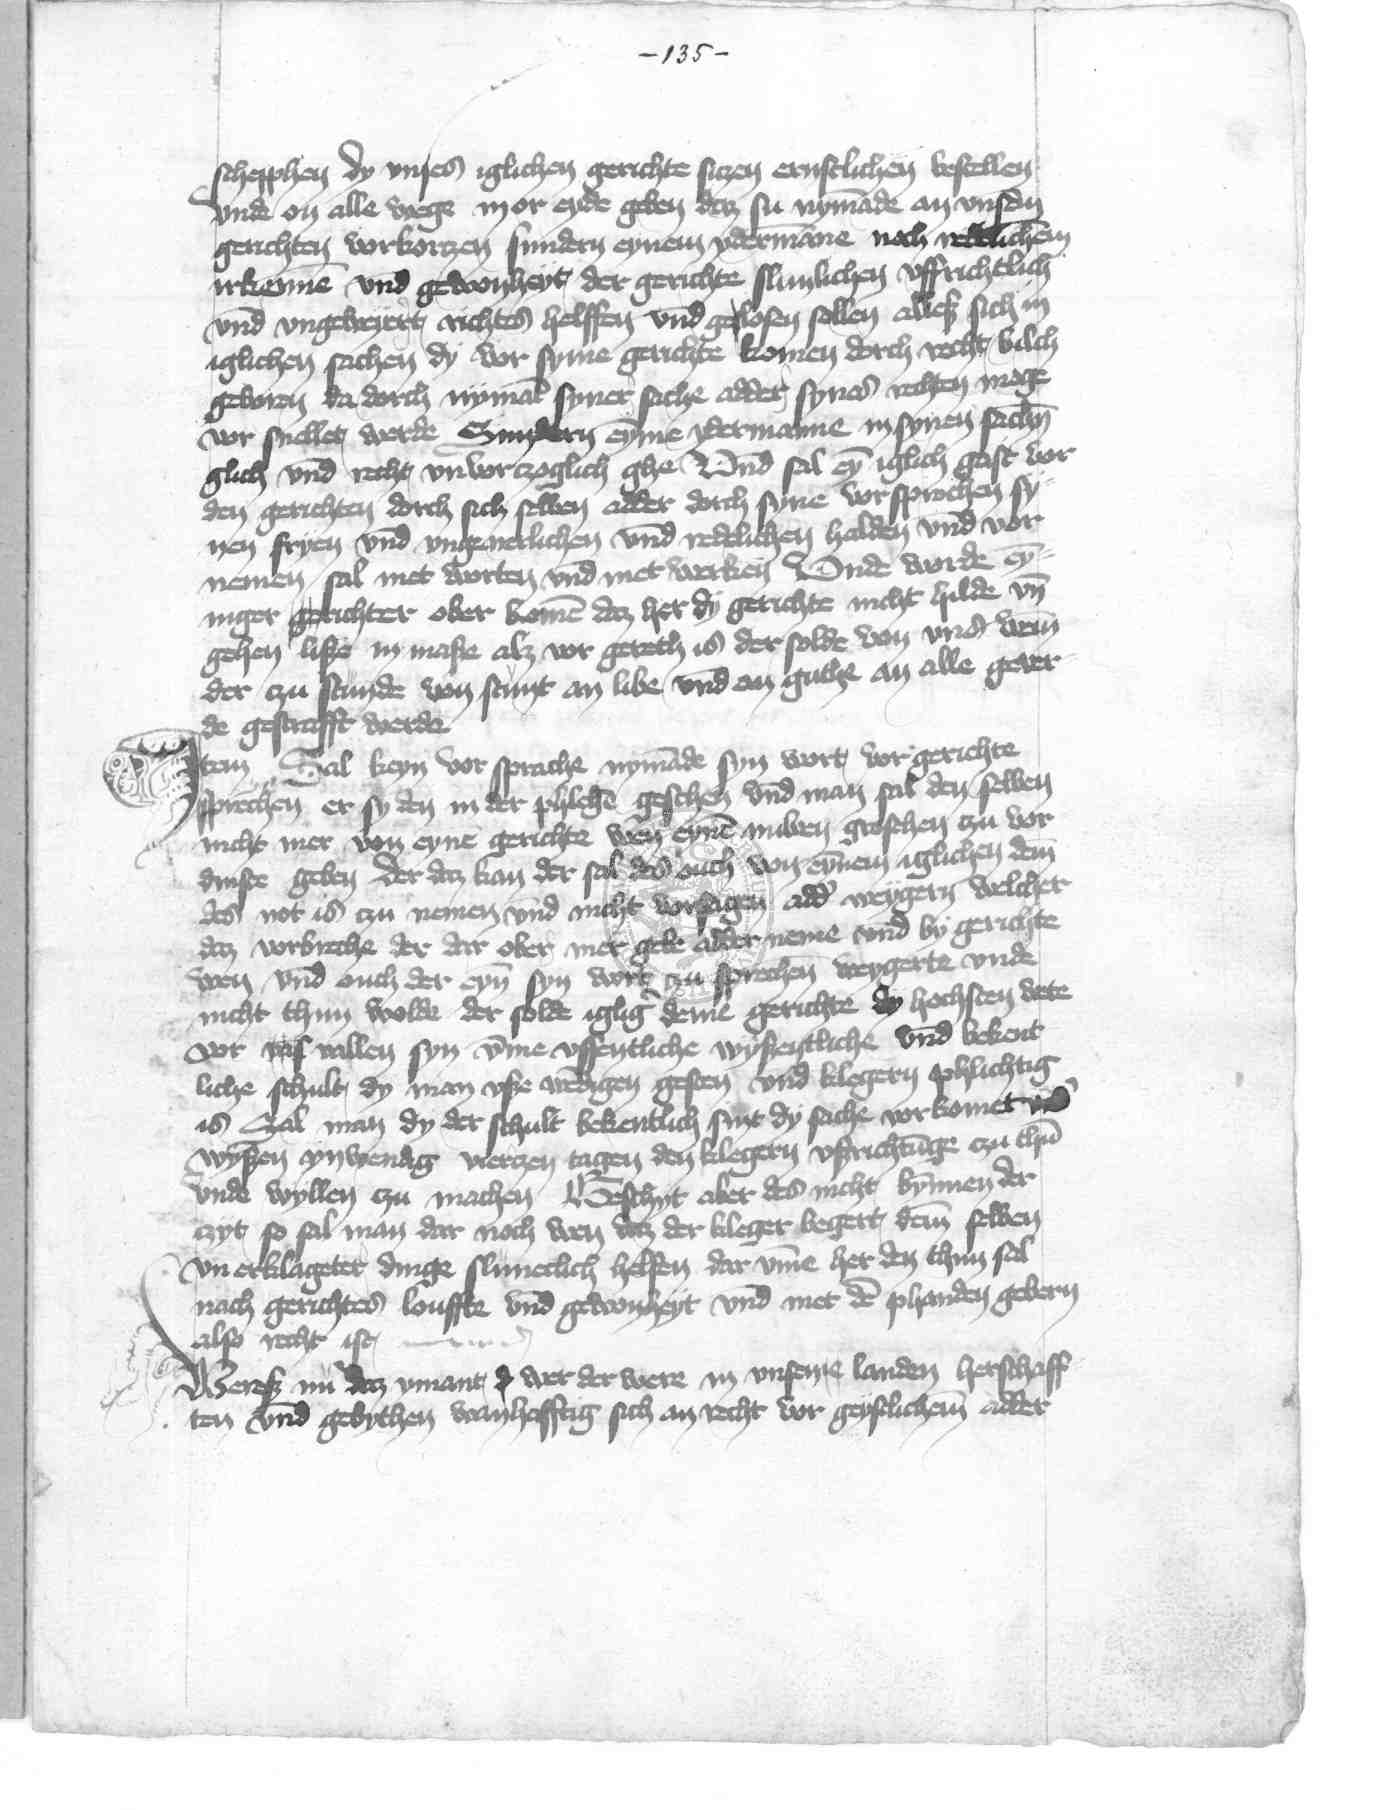 -135-
schepphen dy vnses iglichen gerichte siczen ernstlichen bestellen
vnde on alle wege in or eyde geben daz su nymāde an vnsern
gerichten vorkorczen sundern eynem ydermāne noch redelichem
irkennē vnd gewonheyt der gerichte slunlichen vffrichtlich
vnd vngeweyert richtes helffen vnd geloſen sollen alleß sich in
iglichen sachen dy vor syme gerichte komen dorch recht bilch
geboren da dorch nymāt syner sache adder synes rechten moge
vor snellet werde Sundern eyme ydermanne in synen sachin
glich vnd recht vnvorczoglich ghe Vnd sal ey iglich gast vor
den gerichten dorch sich selben adder dorch syne vorsprochen sy-
nen fryen vnd vngeverlichen vnd redelichen halden vnd vor
nemen sal met worten vnd met wercken Vnde worde ey-
niger gerichter ober komē daz her dy gerichte nicht hilde vn
gehen liße in maße alz vor gereth is der solde von vns
der czu stunde von stunt an libe vnd an guthe an alle gever-
de gestrafft werde
Item Sal keyn vor sprache nymāde syn wort vor gerichte
sprechen er sy den in der phlichē gesehen vnd man sal den selben
nicht mer von eyne gerichte wen eynē nuwen groschen czu vor
dinste geben der daz kan der sal des ouch von eynem iglichen dem
des not is czu nemen vnd nicht vorsagen add weygern welcher
daz vorbreche der dar ober mer gebe adder neme vnd by gerichte
wen vnd ouch der eyn syn wort czu sprechen weygerte vnde
nicht thun wolde der solde iglig deme gerichte dy hochsten wete
vor vallen syn vme vffentliche wyßentliche vnd bekent
liche schult dy man vße wēdigen gesten vnd klegern phlichtig
is Sal man dy der schult bekentlich sint dy sache vorkomet
wyßen ynwendig vierczen tagen den klegern vßrichtūge czu thū
vnde wyllen czu machen Geschyt aber des nicht bynnen der
czyt so sal man dar noch wen daz der kleger begert dem selben
vn erklageter dinge slunetlich helfen dar vme her den thun sal
nach gerichtes louffte vnd gewonheyt vnd met dē phanden gebern
also recht ist
Wereß nu daz ymant wer der were in vnsenne landen herschaff-
ten vnd gebythen wanhafftig sich an recht vor geystlichem adder